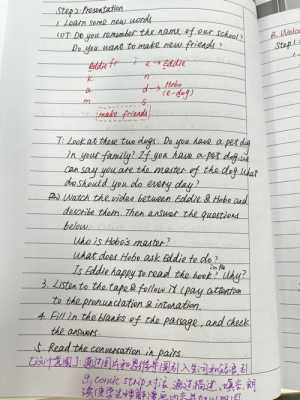 Step 2 Presentation
1. Learn some new words
(1) T: Do you remember the name of our school?
Do you want to make new friends?
Eddie fr i e → Eddie
k n
a d → Hobo
(e-dog)
m s
make friends
T: Look at these two dogs. Do you have a pet dog
in your family? If you have a pet dog, we
can say you are the master of the dog. What
should you do every day?
(2) Watch the video between Eddie & Hobo and
describe them. Then answer the questions
below.
Who is Hobo's master?
What does Hobo ask Eddie to do?
Is Eddie happy to read the book? Why?
3. Listen to the tape & follow it (pay attention
to the pronunciation & intonation.
4. Fill in the blanks of the passage, and check
the answers.
5. Read the conversation in pairs.
[设计意图]: 通过图片和思维导图引入生词和
comic strip 通过描述, 填空, 朗
Step 1